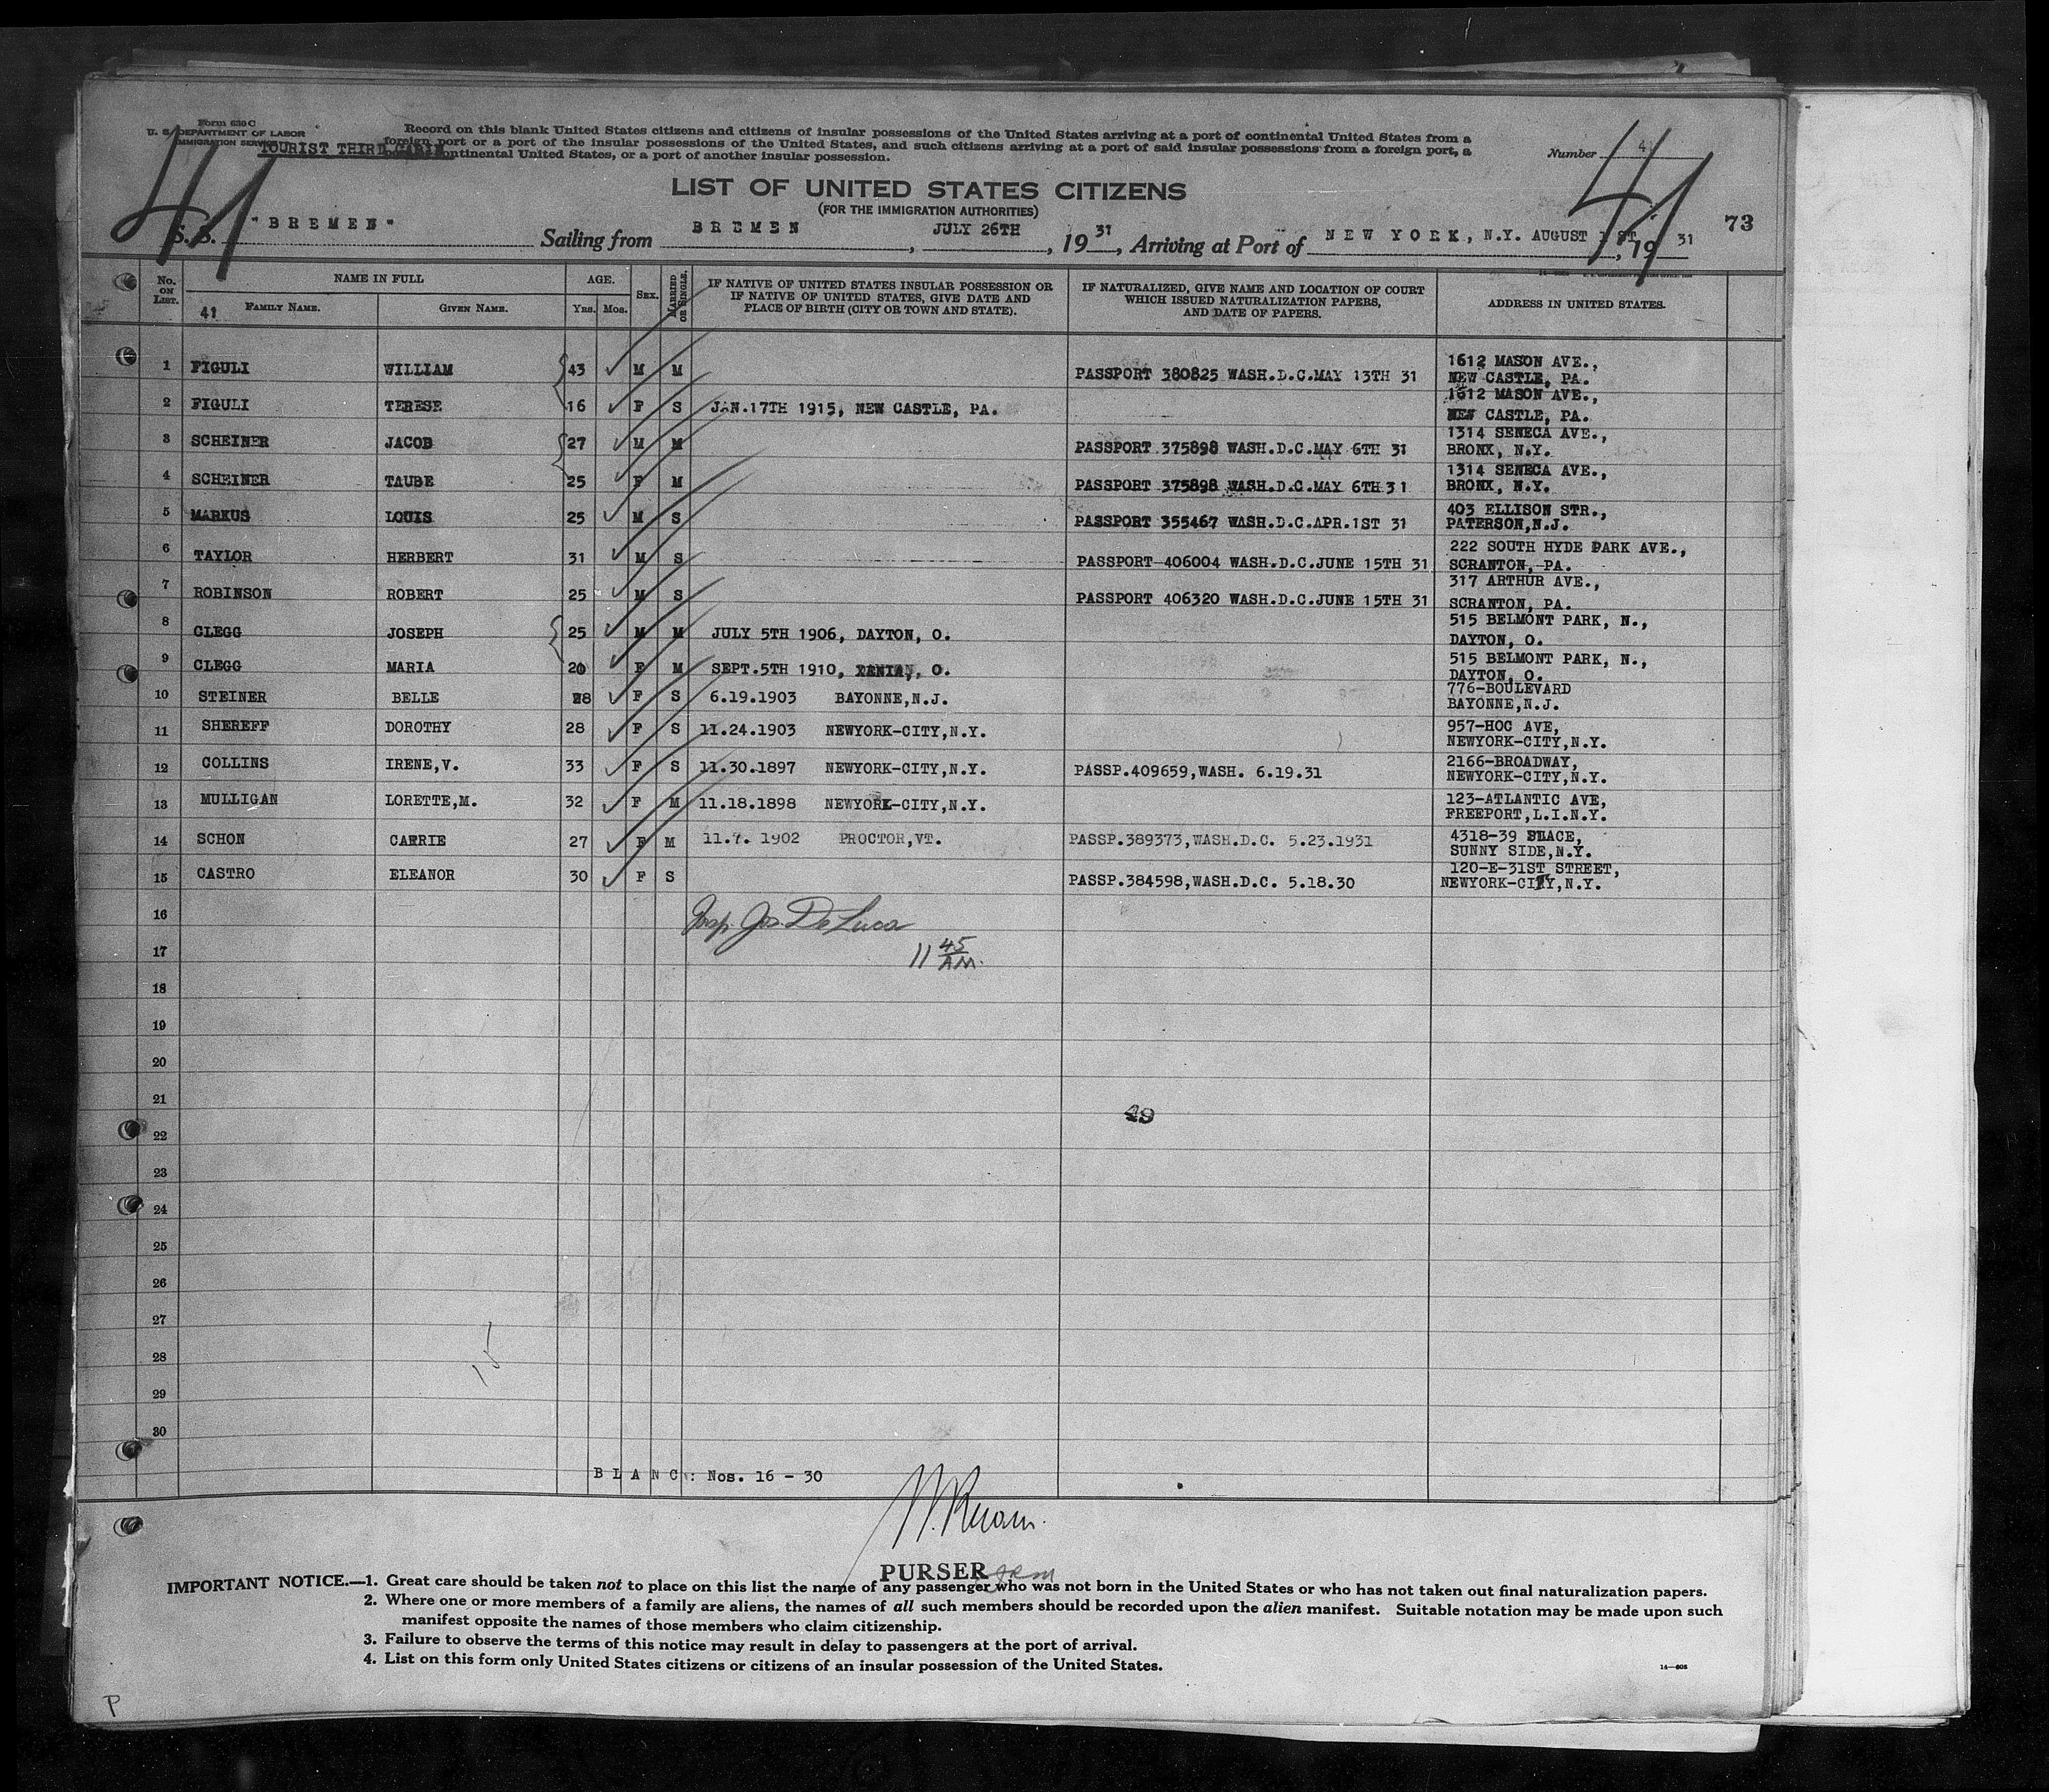 Form 630 C
U. S. DEPARTMENT OF LABOR
IMMIGRATION SERVICE
TOURIST THIRD CABIN
Record on this blank United States citizens and citizens of insular possessions of the United States arriving at a port of continental United States from a
foreign port or a port of the insular possessions of the United States, and such citizens arriving at a port of said insular possessions from a foreign port, a
continental United States, or a port of another insular possession.
Number 41
41
41
LIST OF UNITED STATES CITIZENS
(FOR THE IMMIGRATION AUTHORITIES)
73
S. S. "BREMEN" Sailing from BREMEN, JULY 26TH, 1931, Arriving at Port of NEW YORK, N.Y. AUGUST 1ST, 1931
No. ON LIST. NAME IN FULL AGE. SEX. MARRIED OR SINGLE. IF NATIVE OF UNITED STATES INSULAR POSSESSION OR IF NATIVE OF UNITED STATES, GIVE DATE AND PLACE OF BIRTH (CITY OR TOWN AND STATE). IF NATURALIZED, GIVE NAME AND LOCATION OF COURT WHICH ISSUED NATURALIZATION PAPERS, AND DATE OF PAPERS. ADDRESS IN UNITED STATES.
41 FAMILY NAME. GIVEN NAME. Yrs. Mos.
1 FIGULI WILLIAM 43 M M PASSPORT 380825 WASH.D.C.MAY 13TH 31 1612 MASON AVE.,
NEW CASTLE, PA.
2 FIGULI TERESE 16 F S JAN.17TH 1915, NEW CASTLE, PA. 1612 MASON AVE.,
NEW CASTLE, PA.
3 SCHEINER JACOB 27 M M PASSPORT 375898 WASH.D.C.MAY 6TH 31 1314 SENECA AVE.,
BRONX, N.Y.
4 SCHEINER TAUBE 25 F M PASSPORT 375898 WASH.D.C.MAY 6TH 31 1314 SENECA AVE.,
BRONX, N.Y.
5 MARKUS LOUIS 25 M S PASSPORT 355467 WASH.D.C.APR.1ST 31 403 ELLISON STR.,
PATERSON,N.J.
6 TAYLOR HERBERT 31 M S PASSPORT 406004 WASH.D.C.JUNE 15TH 31 222 SOUTH HYDE PARK AVE.,
SCRANTON, PA.
7 ROBINSON ROBERT 25 M S PASSPORT 406320 WASH.D.C.JUNE 15TH 31 317 ARTHUR AVE.,
SCRANTON, PA.
8 CLEGG JOSEPH 25 M M JULY 5TH 1906, DAYTON, O. 515 BELMONT PARK, N.,
DAYTON, O.
9 CLEGG MARIA 20 F M SEPT.5TH 1910, O. 515 BELMONT PARK, N.,
DAYTON, O.
10 STEINER BELLE 28 F S 6.19.1903 BAYONNE,N.J. 776-BOULEVARD
BAYONNE,N.J.
11 SHEREFF DOROTHY 28 F S 11.24.1903 NEWYORK-CITY,N.Y. 957-HOC AVE,
NEWYORK-CITY,N.Y.
12 COLLINS IRENE,V. 33 F S 11.30.1897 NEWYORK-CITY,N.Y. PASSP.409659,WASH. 6.19.31 2166-BROADWAY,
NEWYORK-CITY,N.Y.
13 MULLIGAN LORETTE,M. 32 F M 11.18.1898 NEWYORK-CITY,N.Y. 123-ATLANTIC AVE,
FREEPORT,L.I.N.Y.
14 SCHON CARRIE 27 F M 11.7. 1902 PROCTOR,VT. PASSP.389373,WASH.D.C. 5.23.1931 4318-39 PLACE,
SUNNY SIDE,N.Y.
15 CASTRO ELEANOR 30 F S PASSP.384598,WASH.D.C. 5.18.30 120-E-31ST STREET,
NEWYORK-CITY,N.Y.
16 Insp. Jos De Luca
17 11 45 AM.
18
19
20
21
49
22
23
24
25
26
27
28
15
29
30
BLANC: Nos. 16 - 30
PURSER
IMPORTANT NOTICE.—1. Great care should be taken not to place on this list the name of any passenger who was not born in the United States or who has not taken out final naturalization papers.
2. Where one or more members of a family are aliens, the names of all such members should be recorded upon the alien manifest. Suitable notation may be made upon such
manifest opposite the names of those members who claim citizenship.
3. Failure to observe the terms of this notice may result in delay to passengers at the port of arrival.
4. List on this form only United States citizens or citizens of an insular possession of the United States.
P